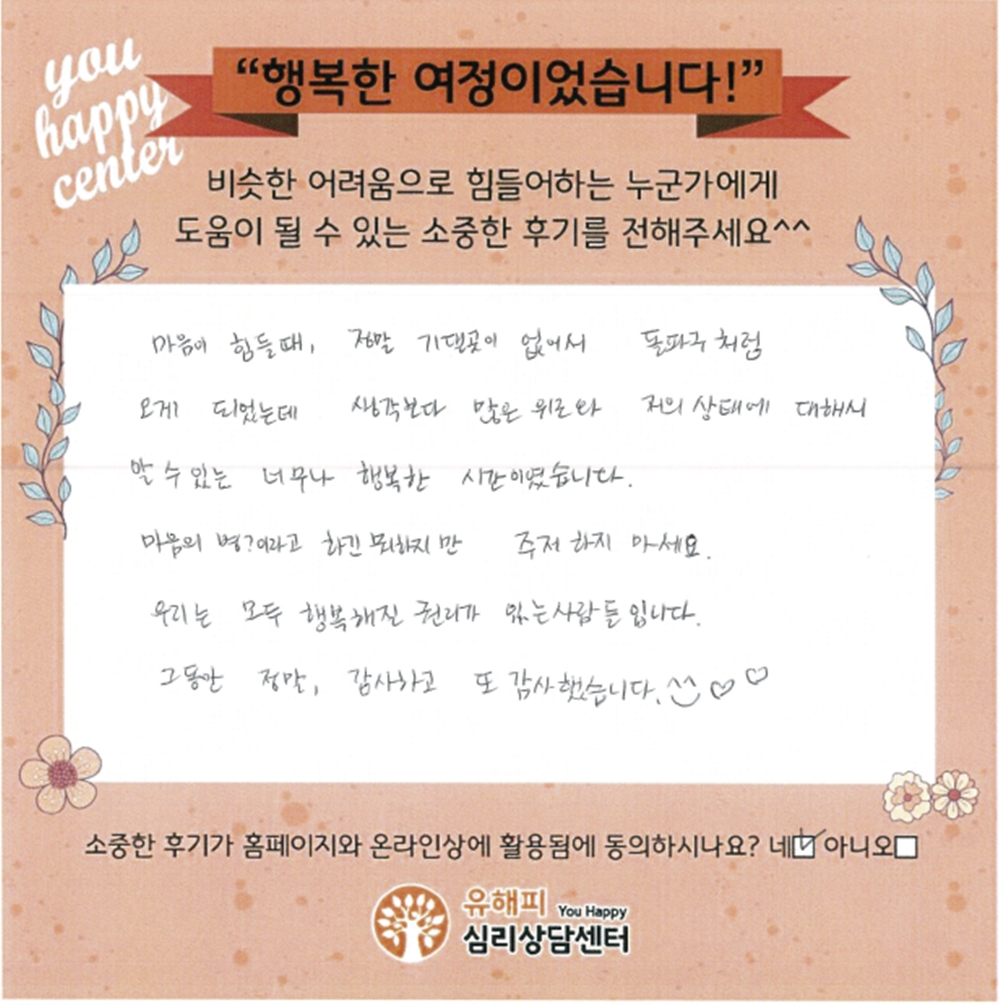 you
happy
center
“행복한 여정이었습니다!”
비슷한 어려움으로 힘들어하는 누군가에게
도움이 될 수 있는 소중한 후기를 전해주세요^^
마음이 힘들때, 정말 기댈곳이 없어서 돌파구처럼
오게 되었는데 생각보다 많은 위로와 저의 상태에 대해서
알 수 있는 너무나 행복한 시간이였습니다.
마음의 병?이라고 하긴 뭐하지만 주저 하지 마세요.
우리는 모두 행복해질 권리가 있는사람들입니다.
그동안 정말, 감사하고 또 감사했습니다.^^ ♡ ♡
소중한 후기가 홈페이지와 온라인상에 활용됨에 동의하시나요? 네☑ 아니오☐
유해피 You Happy
심리상담센터